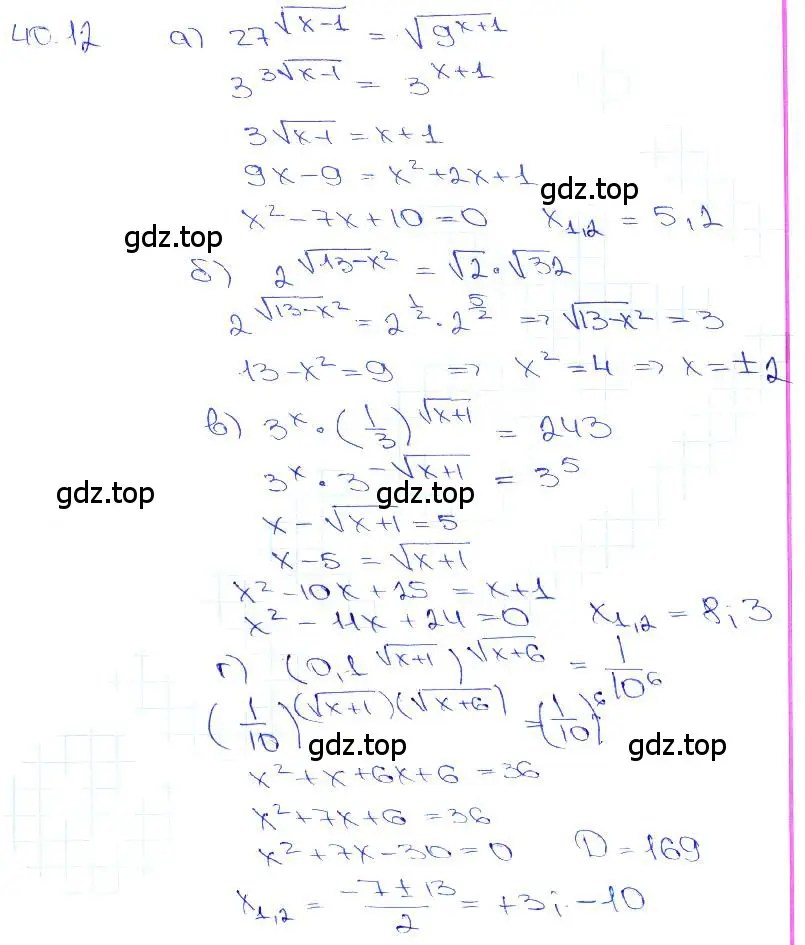 40.12 а) 27^√(x-1) = √(9^(x+1))
3^(3√(x-1)) = 3^(x+1)
3√(x-1) = x+1
9x-9 = x²+2x+1
gdz.top
x²-7x+10=0 x₁,₂ = 5,2
gdz.top
б) 2^√(13-x²) = √2·√32
2^√(13-x²) = 2^(1/2)·2^(5/2) => √(13-x²) = 3
13-x²=9 => x²=4 => x=±2
в) 3^x·(1/3)^√(x+1) = 243
3^x·3^(-√(x+1)) = 3^5
gdz.top gdz.top
x-√(x+1) = 5
x-5 = √(x+1)
x²-10x+25 = x+1
x²-11x+24=0 x₁,₂ = 8;3
г) (0,1^√(x+1))^√(x+6) = 1/10⁶
(1/10)^((√(x+1))(√(x+6))) = (1/10)⁶
gdz.top gdz.top
x²+x+6x+6 = 36
x²+7x+6 = 36
x²+7x-30=0 D=169
x₁,₂ = (-7±13)/2 = +3; -10